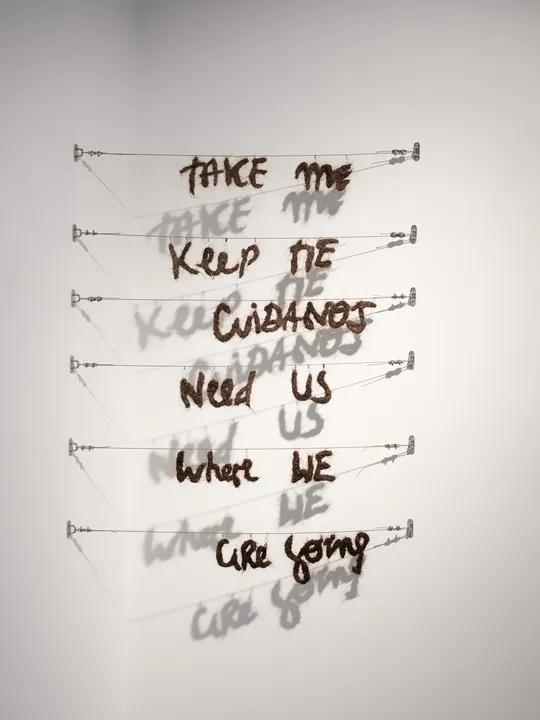 TAKE me
Keep ME
CUIDANOS
Need US
where WE
are going